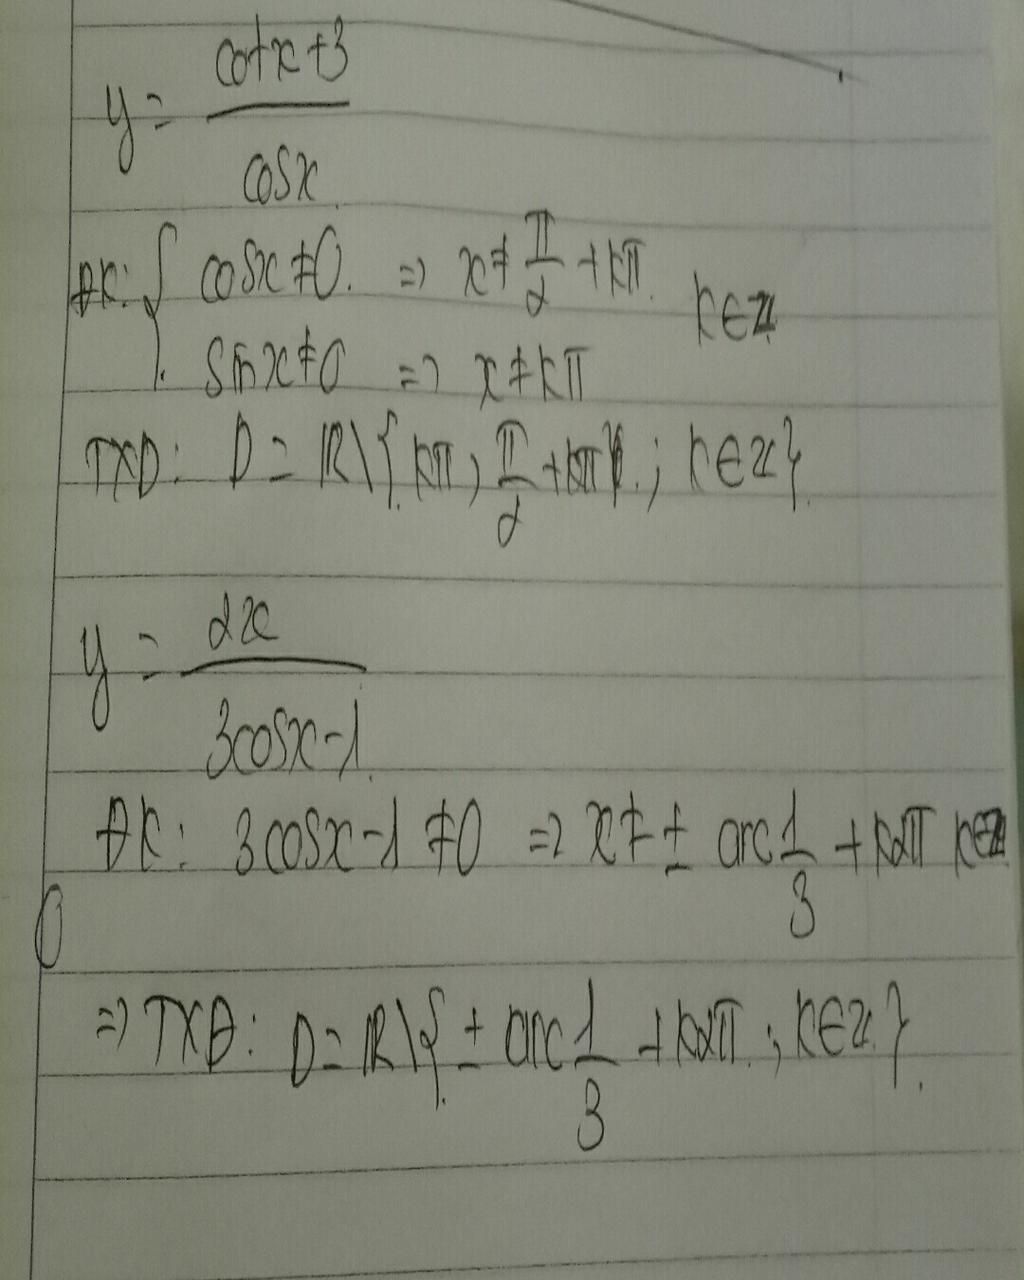 y = \frac{cotx+3}{cosx}
ĐK: { cosx ≠ 0. => x ≠ \frac{π}{2} + kπ. k∈Z
sinx ≠ 0 => x ≠ kπ
TXD: D = R\{kπ, \frac{π}{2} + kπ.; k∈Z}
y = \frac{2x}{3cosx-1}
ĐK: 3cosx-1 ≠ 0 => x ≠ ± arc\frac{1}{3} + k2π k∈Z
=> TXĐ: D = R\{± arc\frac{1}{3} + k2π.; k∈Z.}.